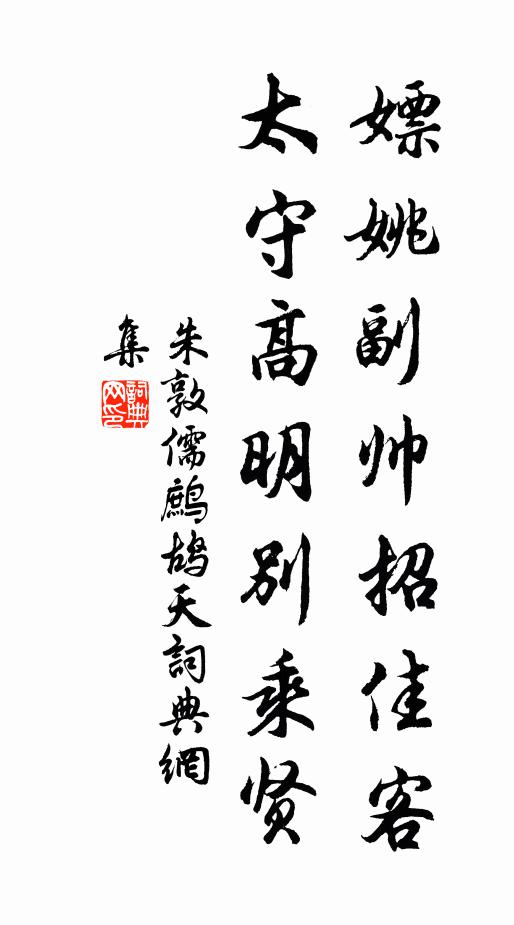 嫖姚副帅招佳客
太守高明别乘贤
朱敦儒鷓鸪天詞典網
集
詞典網印